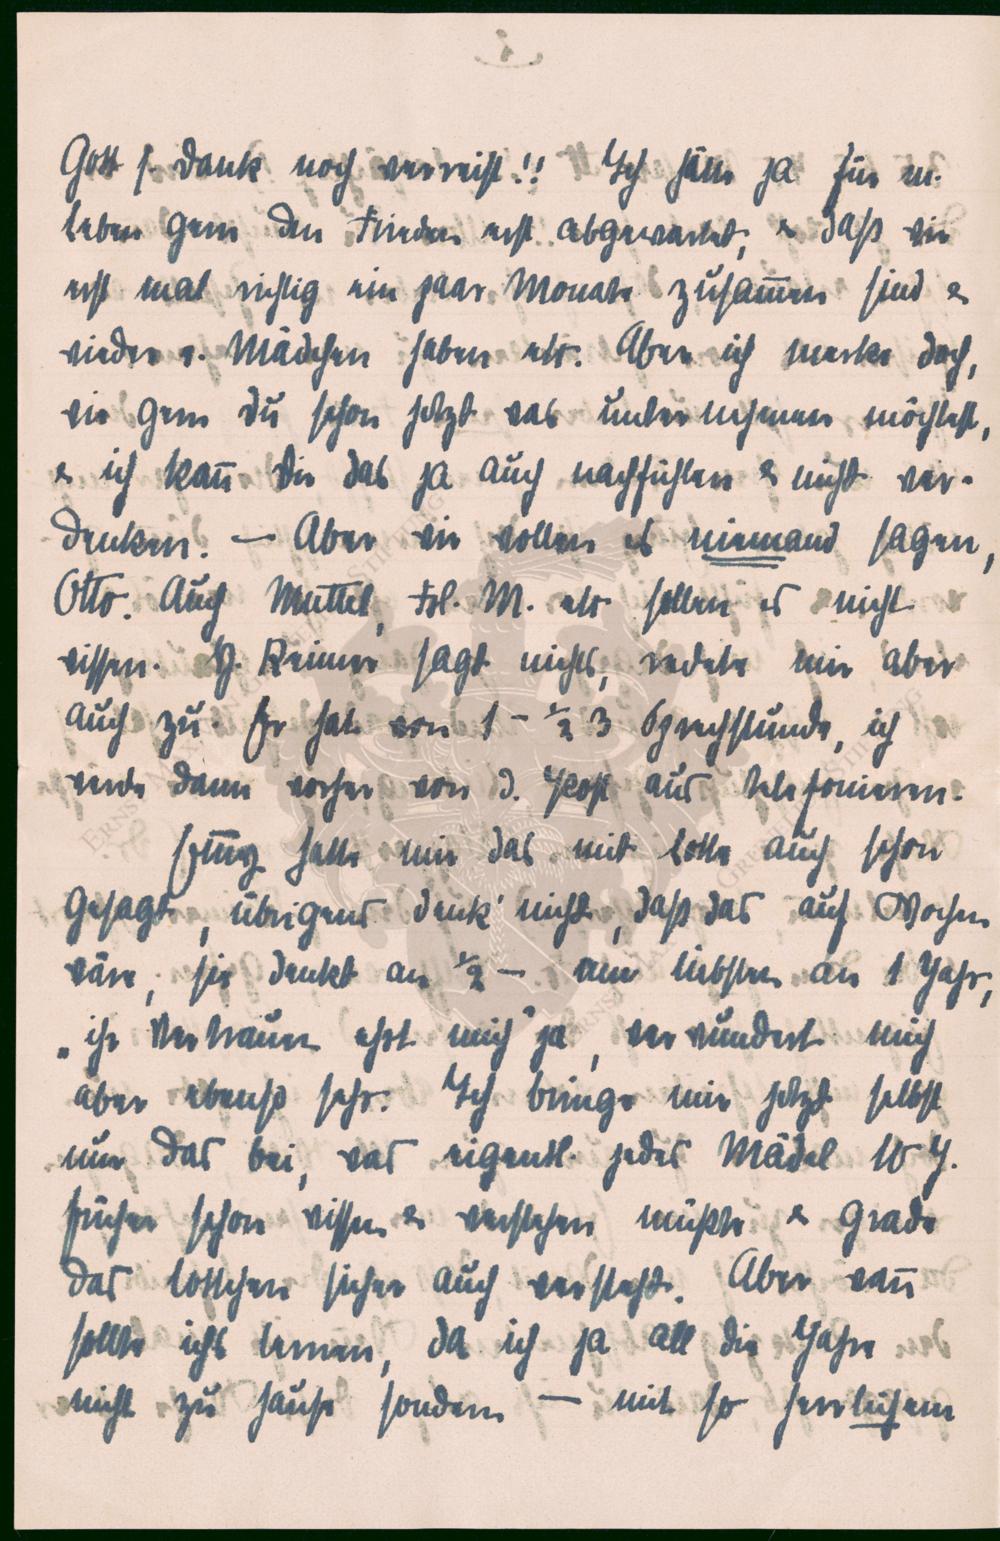 Gott s. Dank noch verreist!! Ich hätte ja für m.
Leben gern den Frieden erst abgewartet, & daß wir
erst mal richtig ein paar Monate zusam̅en sind &
wieder e. Mädchen haben etc. Aber ich merke doch,
wie gern Du schon jetzt was unternehmen möchtest,
& ich kan̅ Dir das ja auch nachfühlen & nicht ver-
denken. — Aber wir wollen es niemand sagen,
Otto. Auch Muttel, Frl. M. etc sollen es nicht
wissen. H. Reimer sagt nichts, redete mir aber
auch zu. Er hat von 1 - ½ 3 Sprechstunde, ich
werde dann vorher von d. Post aus telefonieren.
hatte mir das mit Lotte auch schon
gesagt, übrigens denk' nicht, daß das auf Wochen
wäre, sie denkt an ½ — am liebsten an 1 Jahr,
„ihr Vertrauen ehrt mich" ja, verwundert mich
aber ebenso sehr. Ich bringe mir jetzt selbst
nur das bei, was eigentl. jedes Mädel 10 J.
früher schon wissen & verstehen müßte & grade
das Lottchen sicher auch versteht. Aber wan̅
sollte ichs lernen, da ich ja all die Jahre
nicht zu Hause sondern — mit so herrlichem